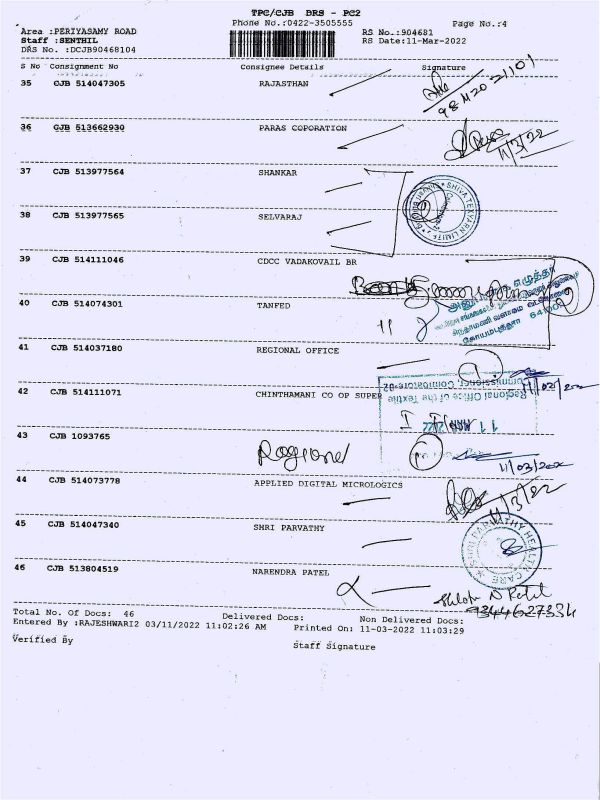 TPC/CJB DRS - PC2
Phone No.:0422-3505555
Page No.:4
Area :PERIYASAMY ROAD
Staff :SENTHIL
DRS No. :DCJB90468104
RS No.:904681
RS Date:11-Mar-2022
S No Consignment No Consignee Details Signature
35 CJB 514047305 RAJASTHAN
36 CJB 513662930 PARAS COPORATION
11/3/22
37 CJB 513977564 SHANKAR
SHIVA TEXYARN LIMITED
38 CJB 513977565 SELVARAJ
39 CJB 514111046 CDCC VADAKOVAIL BR
40 CJB 514074301 TANFED
41 CJB 514037180 REGIONAL OFFICE
42 CJB 514111071 CHINTHAMANI CO OP SUPER
Regional Office of the Textile
Commissioner, Coimbatore-02
11 MAR 2022
43 CJB 1093765
11/03/2022
44 CJB 514073778 APPLIED DIGITAL MICROLOGICS
11/3/22
45 CJB 514047340 SHRI PARVATHY
SHRI PARVATHY HEALTH CARE
46 CJB 513804519 NARENDRA PATEL
N Patel
9344627334
Total No. Of Docs: 46 Delivered Docs: Non Delivered Docs:
Entered By :RAJESHWARI2 03/11/2022 11:02:26 AM Printed On: 11-03-2022 11:03:29
Verified By
Staff Signature